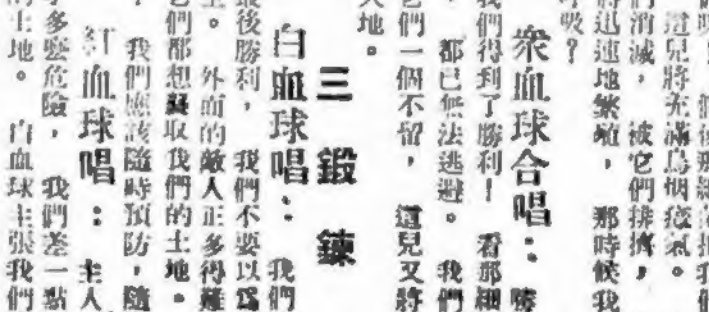 這兒將充滿烏烟瘴氣。
們消滅，被它們排擠，
將迅速地繁殖，那時候我
呼吸？
衆血球合唱：嘹
我們得到了勝利！看那細
都已無法逃避。我們
它們一個不留，這兒又將
大地。
三 鍛鍊
白血球唱：我們
最後勝利，我們不要以爲
。外面的敵人正多得難
它們都想竊取我們的土地。
我們應該隨時預防，隨
紅血球唱：主人
多麼危險，我們差一點
的土地。白血球主張我們